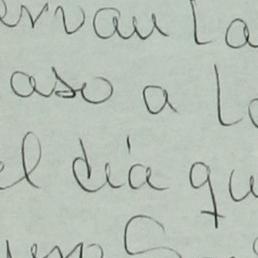 ervan la
aso a lo
el día qu